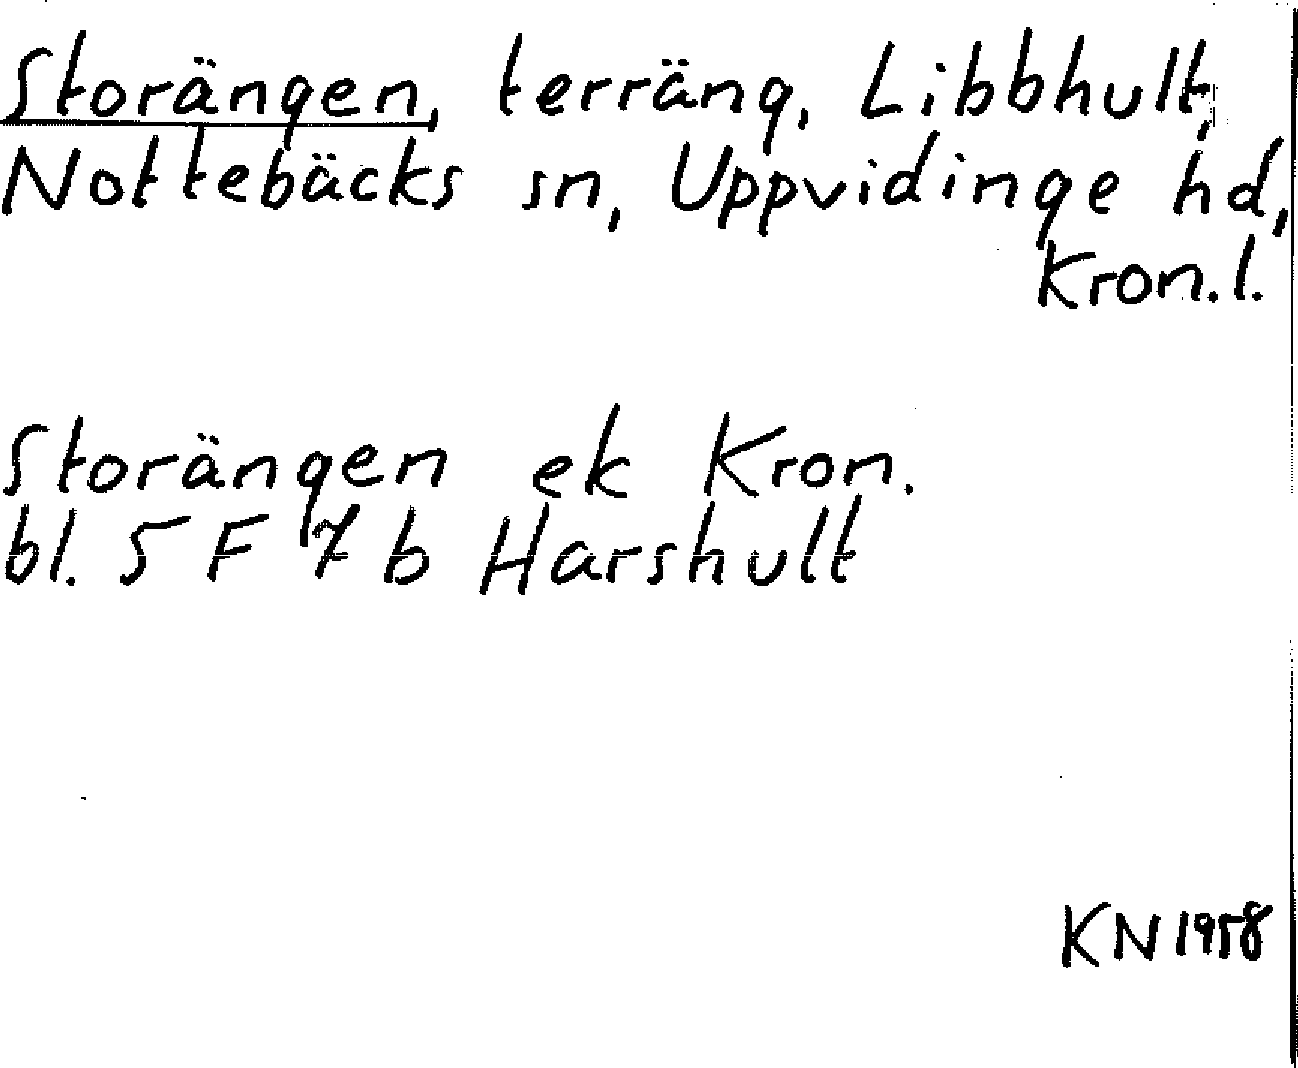 Storängen, terräng, Libbhult,
Nottebäcks sn, Uppvidinge hd,
Kron.l.
Storängen ek Kron.
bl. 5 F 7 b Harshult
KN 1958